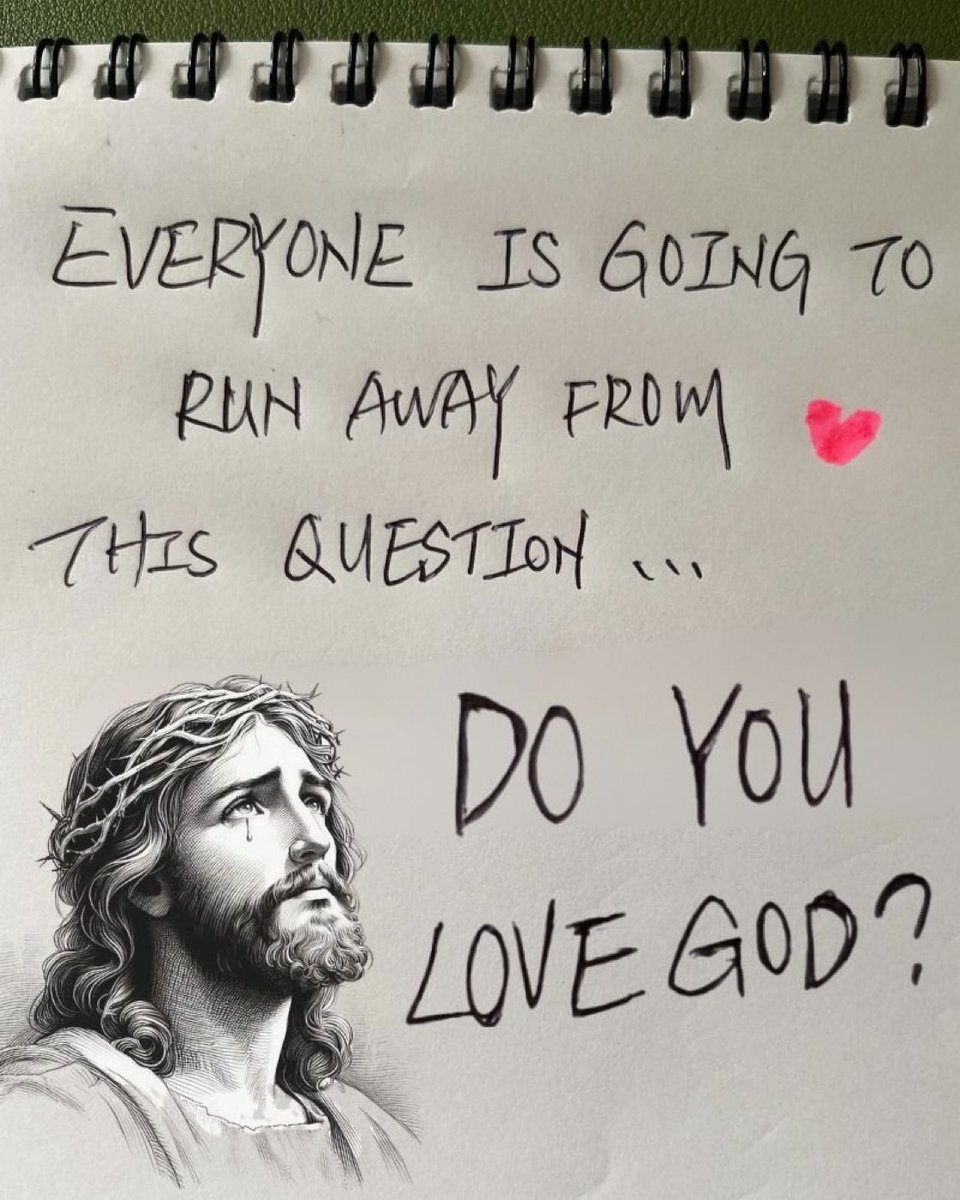 EVERYONE IS GOING TO
RUN AWAY FROM
THIS QUESTION...
DO YOU
LOVE GOD?